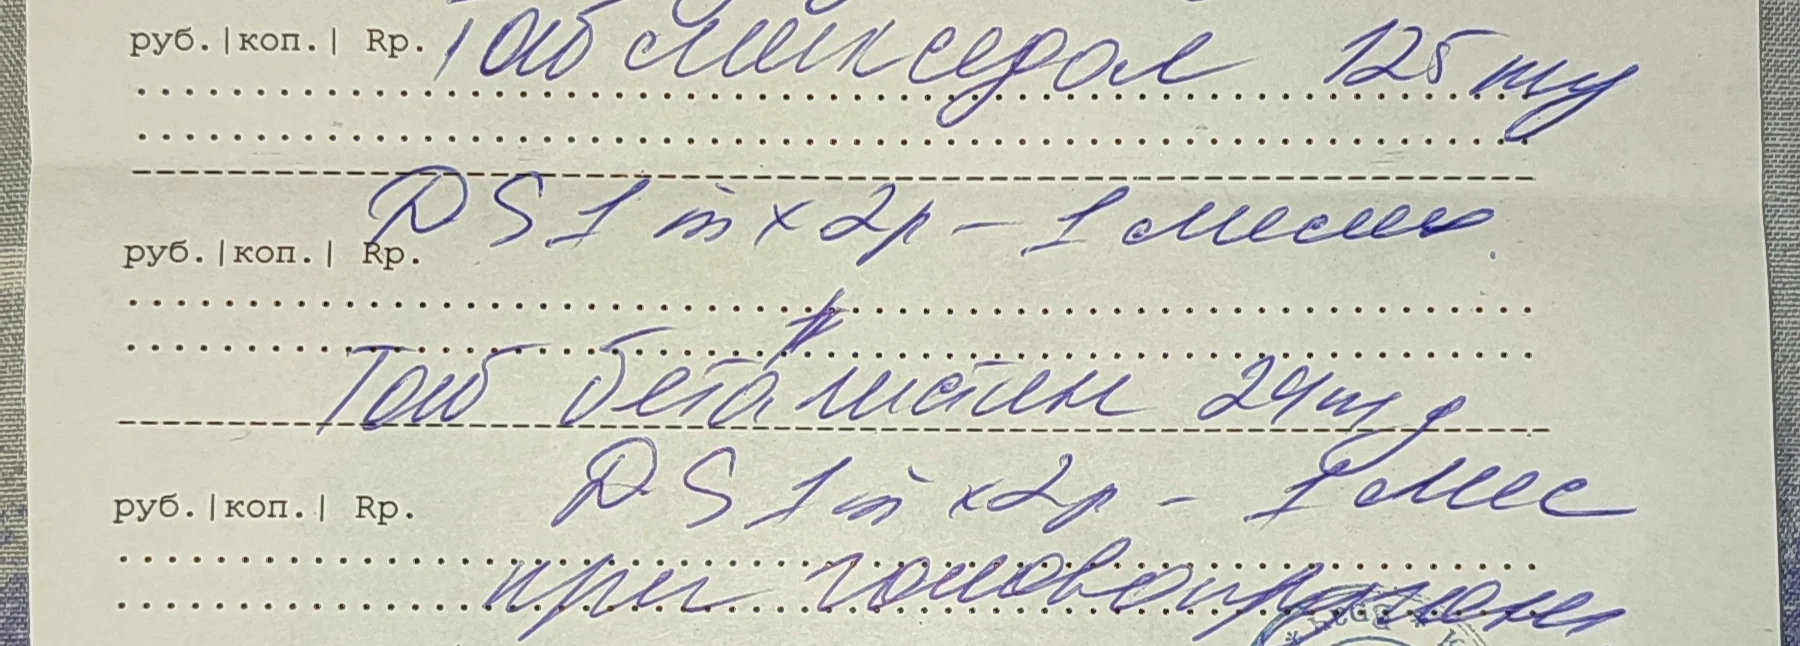 руб.|коп.| Rp. Таб мексидол 125 mg
DS 1 т х 2р - 1 месяц.
руб.|коп.| Rp.
Таб бетагистин 24 mg
DS 1 т х 2р - 1 мес
руб.|коп.| Rp.
при головокружении